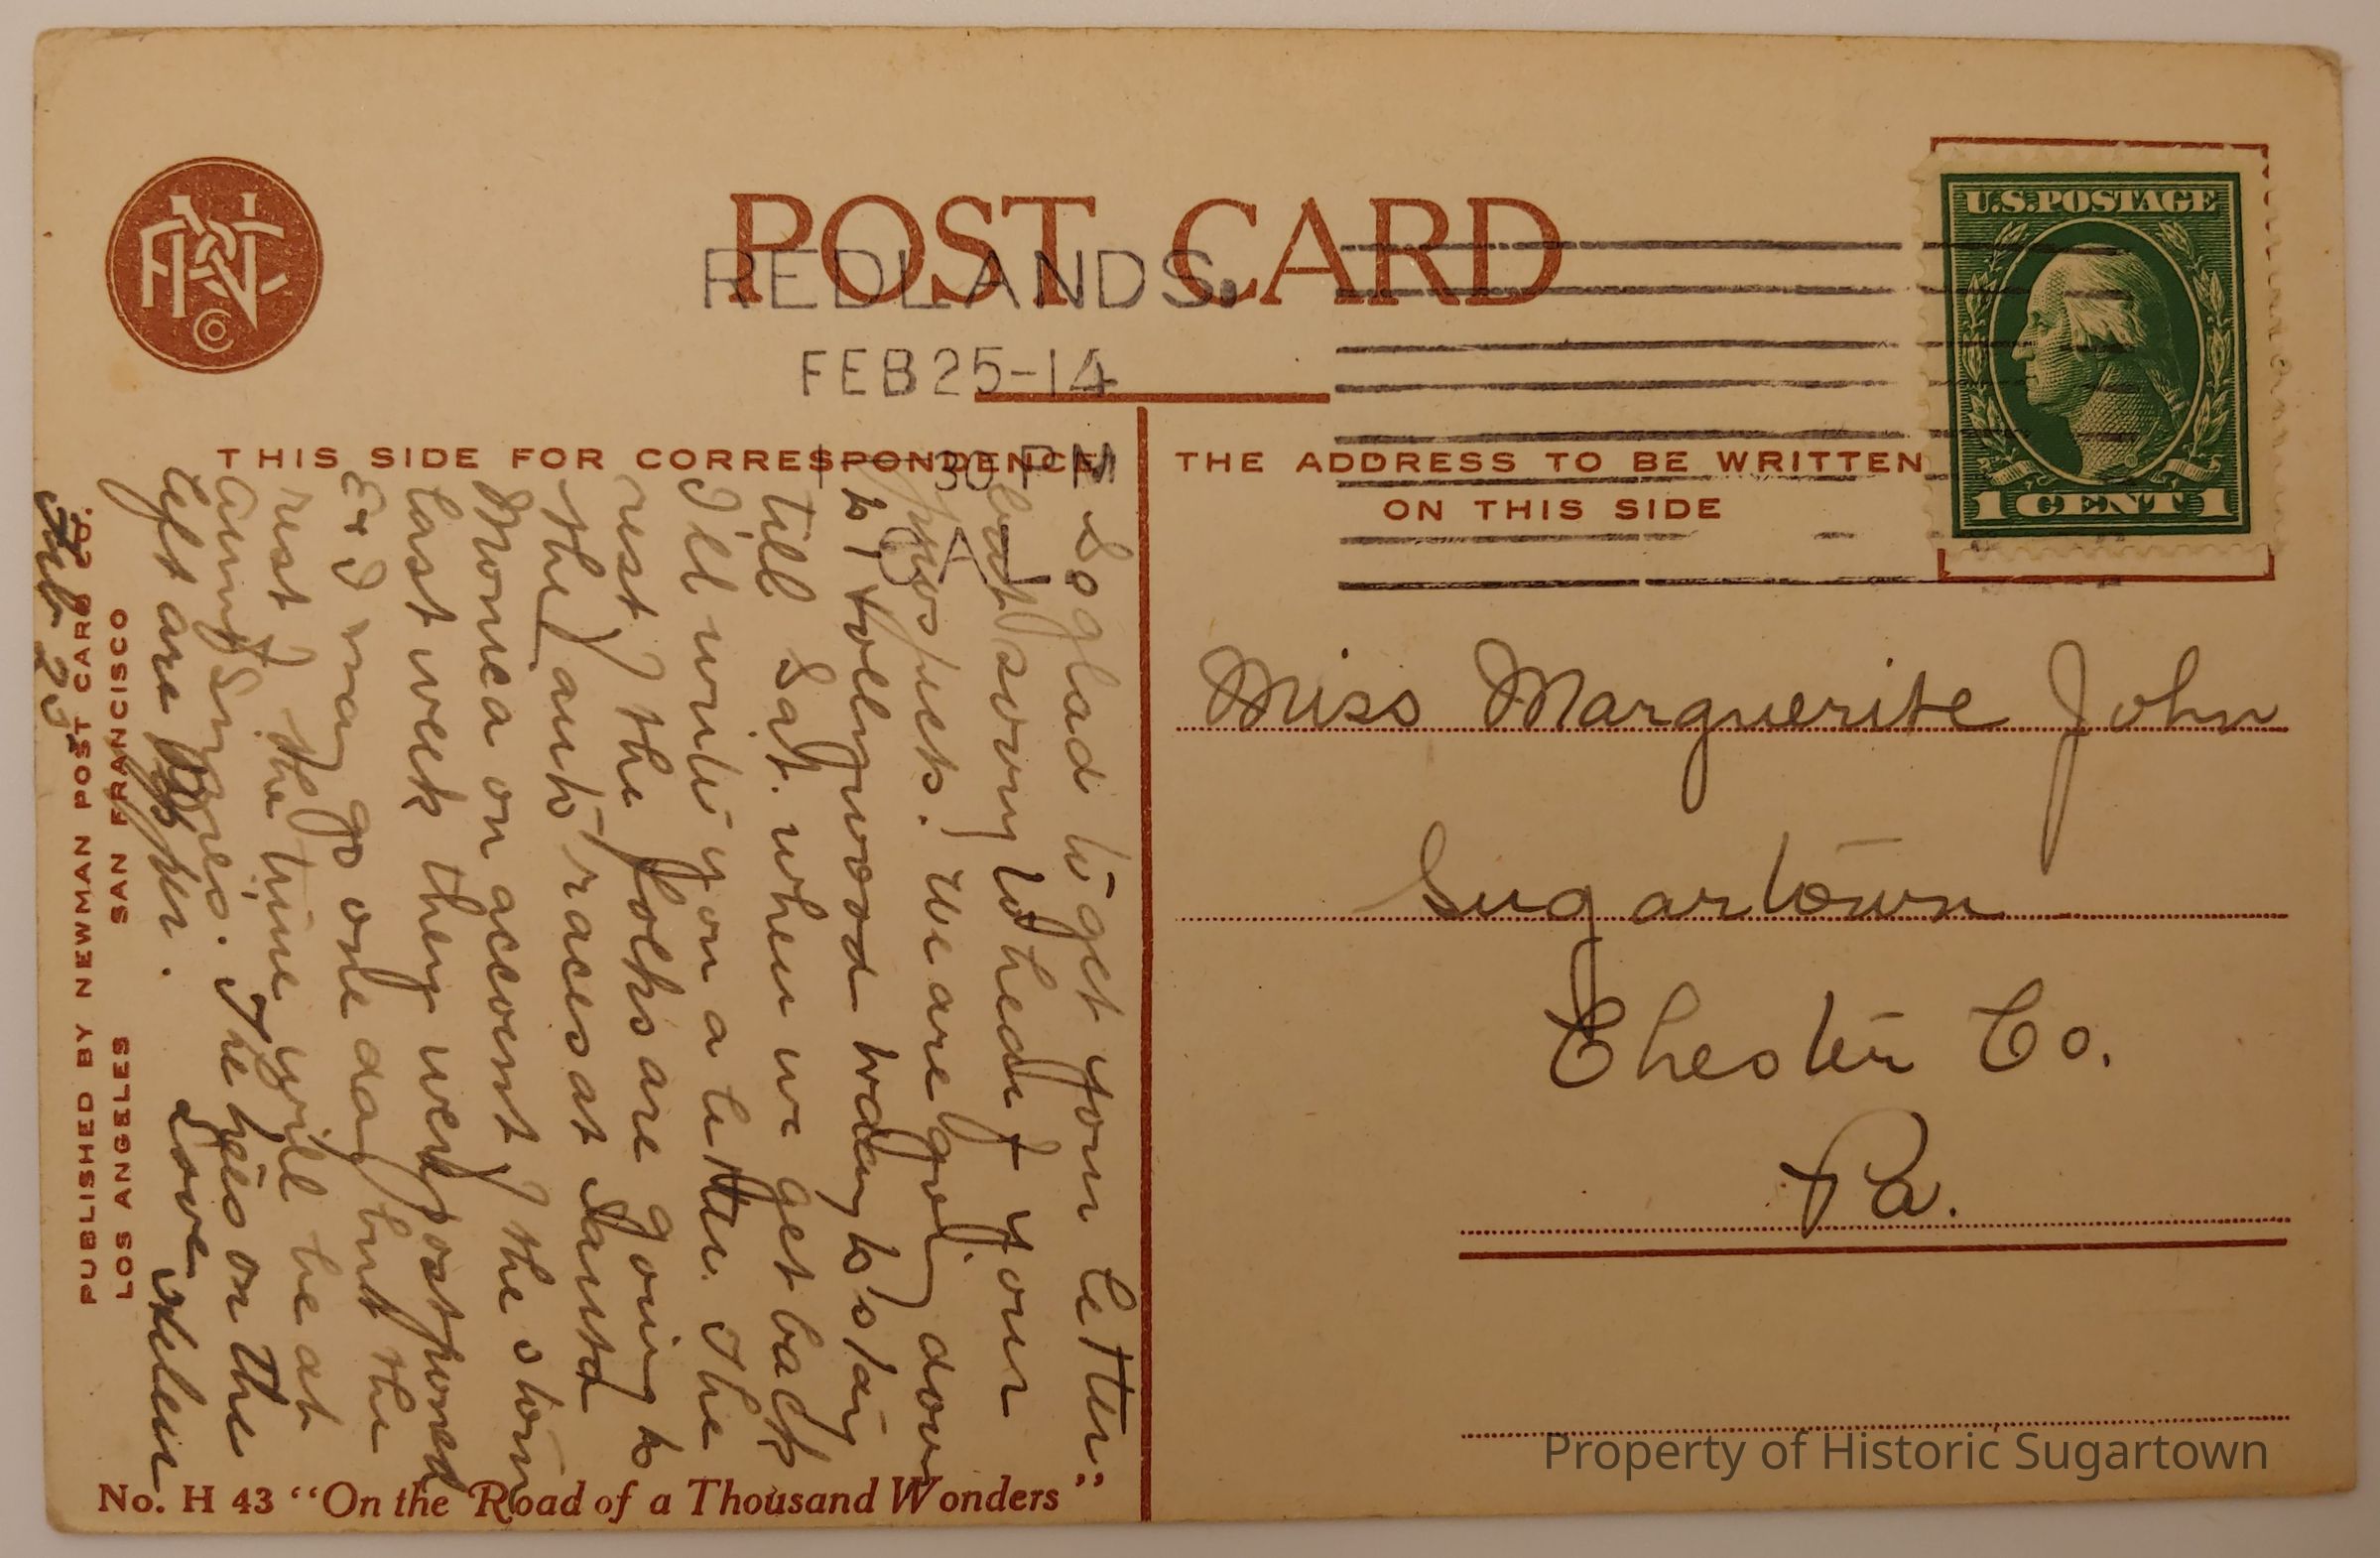 POST CARD
REDLANDS.
FEB 25-14
1-30 PM
CAL
U.S. POSTAGE
1 CENT 1
THIS SIDE FOR CORRESPONDENCE
THE ADDRESS TO BE WRITTEN
ON THIS SIDE
Miss Marguerite John
Sugartown
Chester Co.
Pa.
So glad to get your letter
but sorry to hear of your
We are going down
to Hollywood today to stay
till Sat. when we get back
I'll write you a letter. The
rest of the folks are going to
the auto races at Santa
Monica on account of the storm
last week they were postponed
E & I may go one day but the
rest of the time will be at
Aunt The on the
left are
Love Helen
Feb 25
PUBLISHED BY NEWMAN POST CARD CO.
LOS ANGELES SAN FRANCISCO
No. H 43 "On the Road of a Thousand Wonders"
Property of Historic Sugartown